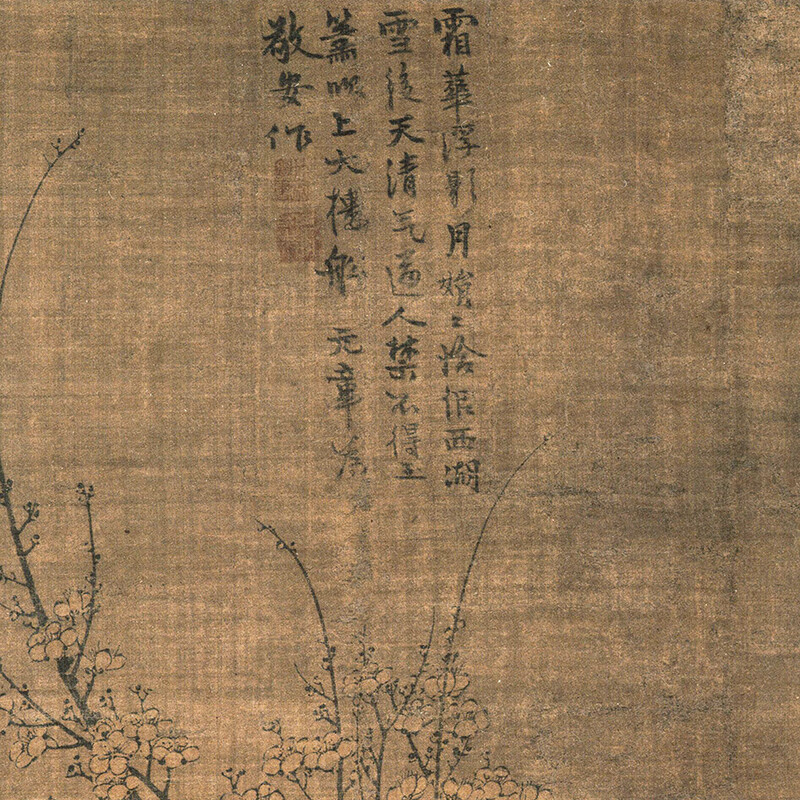 霜華浮影月娟娟恰似西湖
雪後天清氣逼人禁不得玉
簫吹上大樓船 元章為
敬安作